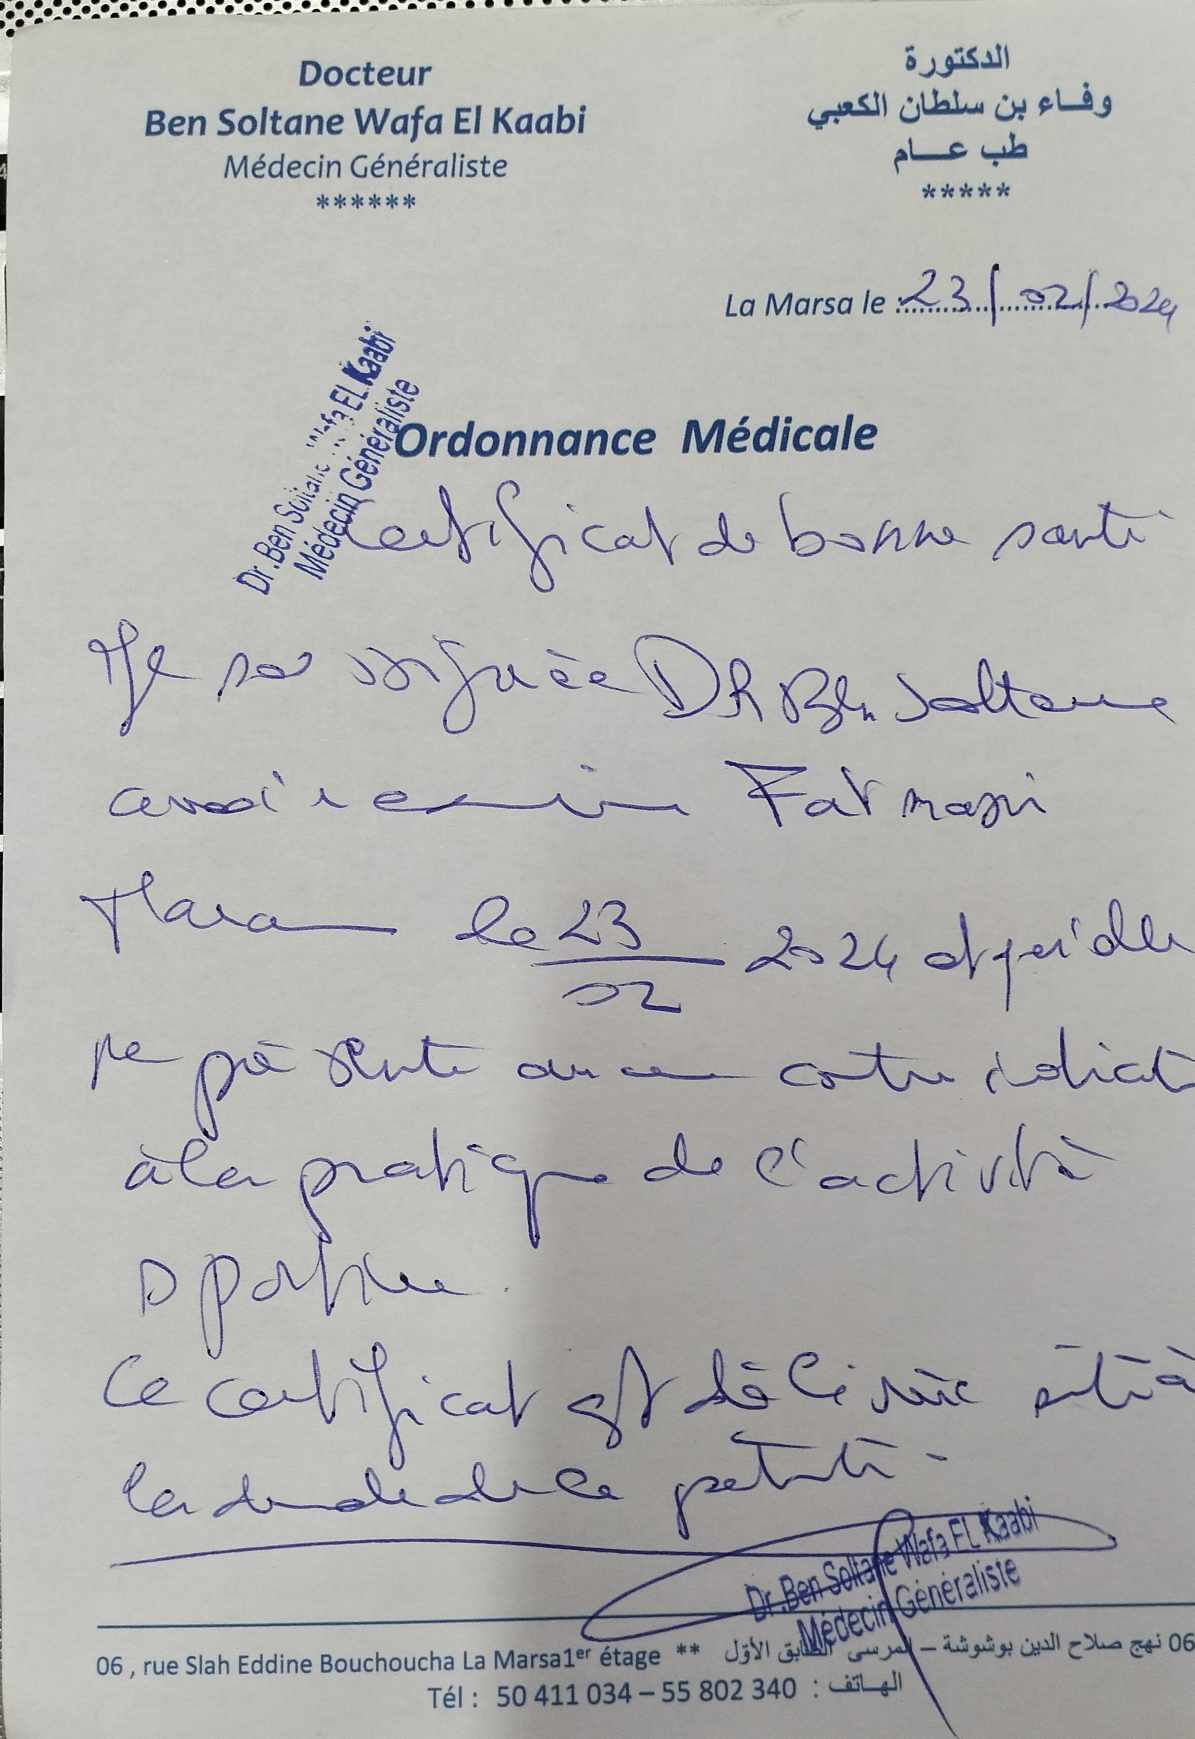 Docteur
Ben Soltane Wafa El Kaabi
Médecin Généraliste
******
الدكتورة
وفاء بن سلطان الكعبي
طب عام
*****
La Marsa le 23/02/2024
Dr.Ben Soltane Wafa EL Kaabi
Médecin Généraliste
Ordonnance Médicale
Certificat de bonne santé
Je soussignée DR Ben Soltane
avoir examiné
le 23/02 2024 et qu'elle
ne présente aucune contre indicat
à la pratique de l'activité
sportive.
Ce certificat est délivré
la demande de la
Dr.Ben Soltane Wafa EL Kaabi
Médecin Généraliste
06 , rue Slah Eddine Bouchoucha La Marsa1er étage ** 06 نهج صلاح الدين بوشوشة – المرسى الطابق الأوّل
Tél : 50 411 034 – 55 802 340 : الهاتف